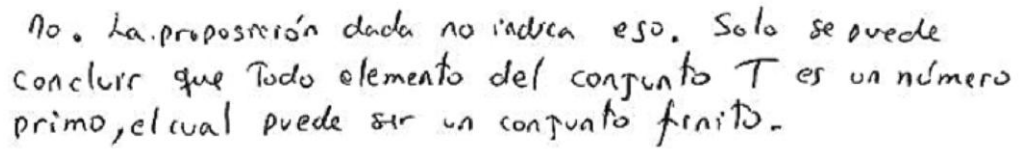 No. La proposición dada no indica eso. Solo se puede
concluir que Todo elemento del conjunto T es un número
primo, el cual puede ser un conjunto finito.